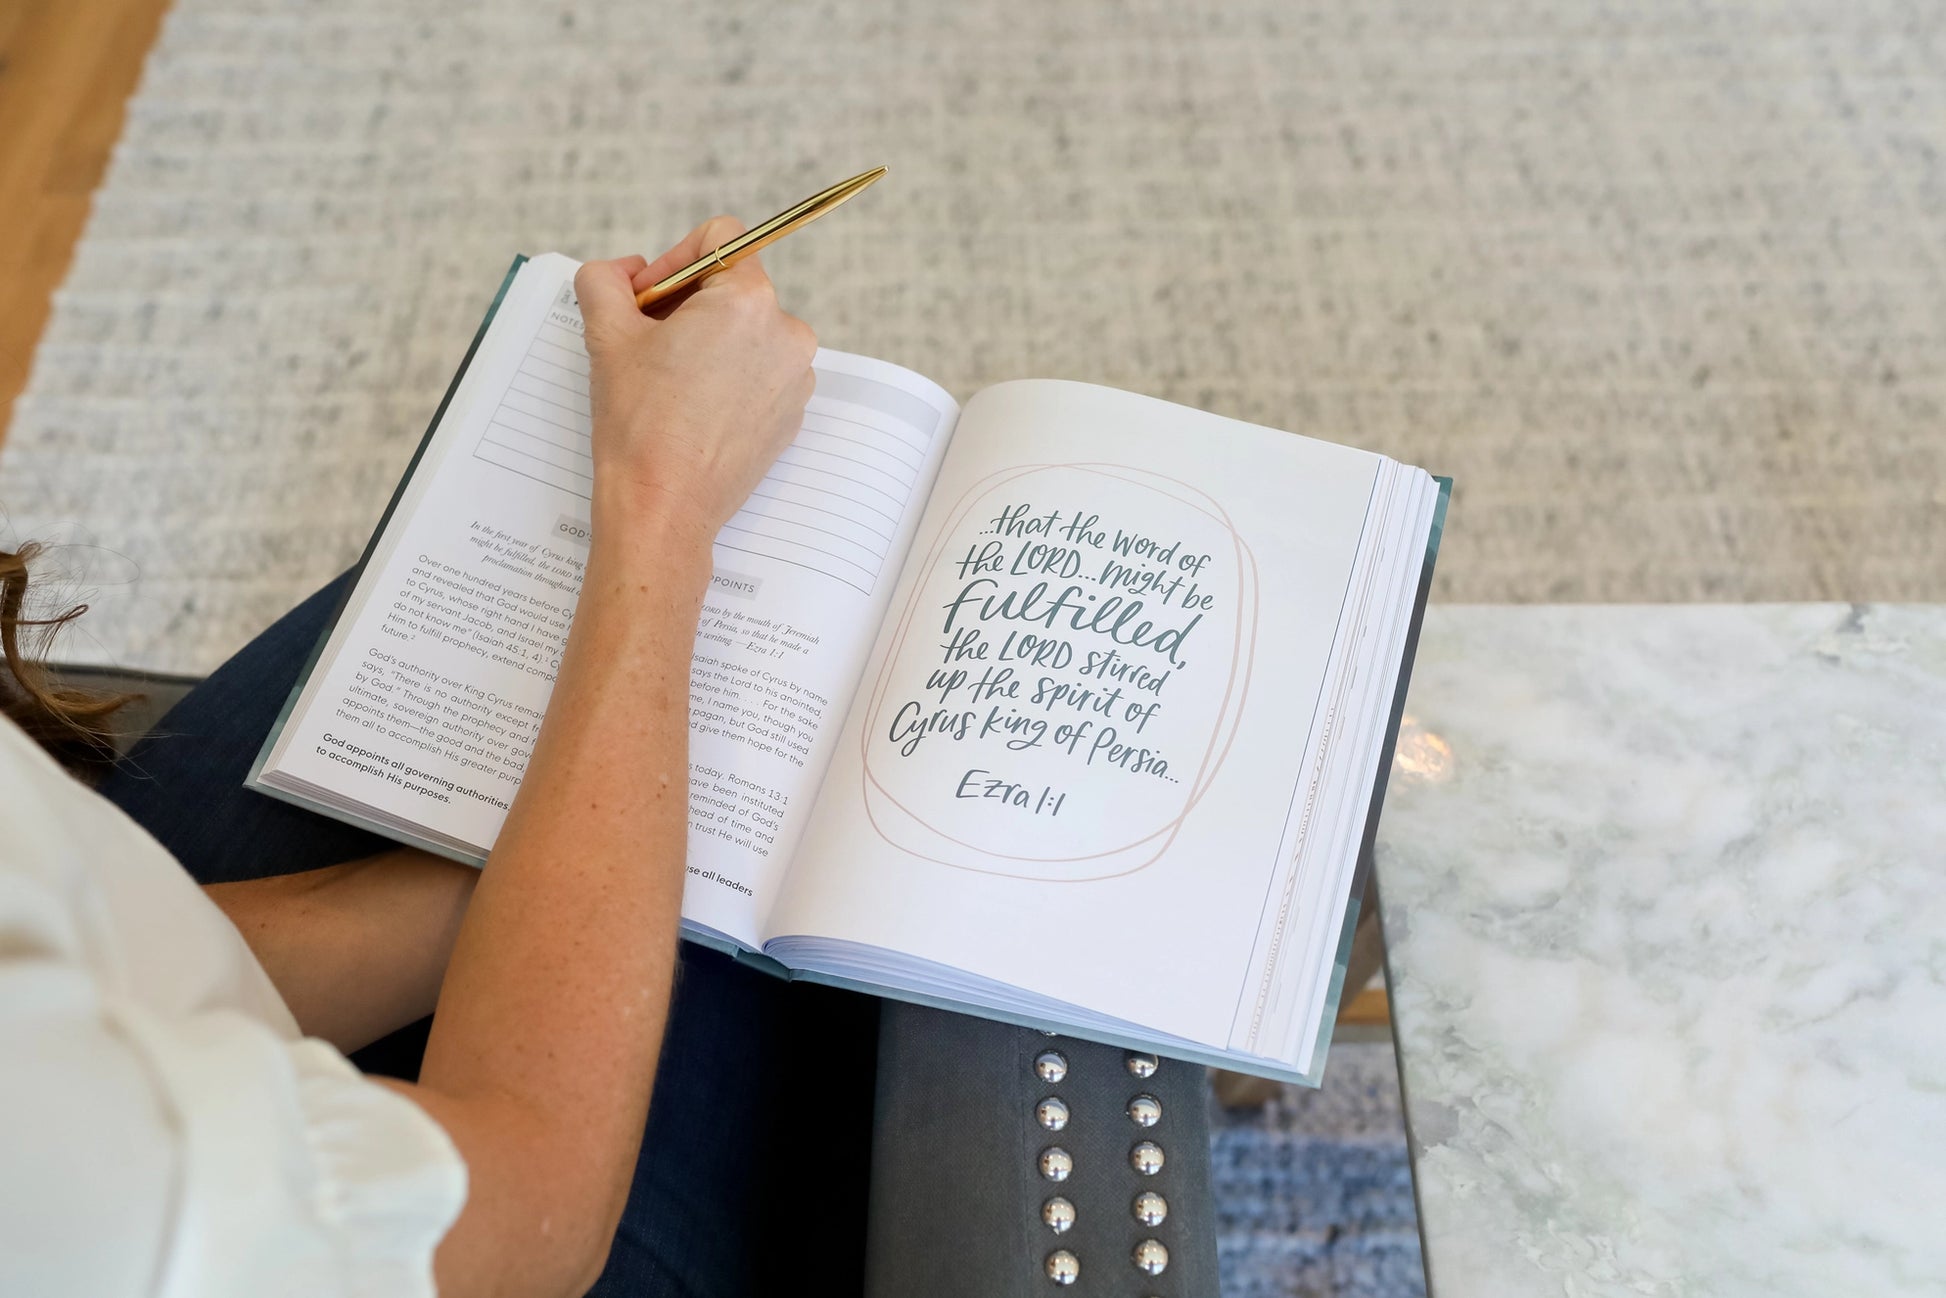 DAY
NOTES
GOD'S
PPOINTS
In the first year of Cyrus king
LORD by the mouth of Jeremiah
might be fulfilled, the LORD
of Persia, so that he made a
proclamation throughout
writing. —Ezra 1:1
Over one hundred years before
Isaiah spoke of Cyrus by name
and revealed that God would use
says the Lord to his anointed,
to Cyrus, whose right hand I have
before him. . . . For the sake
of my servant Jacob, and Israel my
me, I name you, though you
do not know me" (Isaiah 45:1, 4).¹
pagan, but God still used
Him to fulfill prophecy, extend
give them hope for the
future.²
God's authority over King Cyrus
today. Romans 13:1
says, "There is no authority except
have been instituted
by God." Through the prophecy and
reminded of God's
ultimate, sovereign authority over
ahead of time and
appoints them—the good and the bad,
trust He will use
them all to accomplish His greater
God appoints all governing authorities,
use all leaders
to accomplish His purposes.
...that the word of
the LORD...might be
fulfilled,
the LORD stirred
up the spirit of
Cyrus king of Persia...
Ezra 1:1